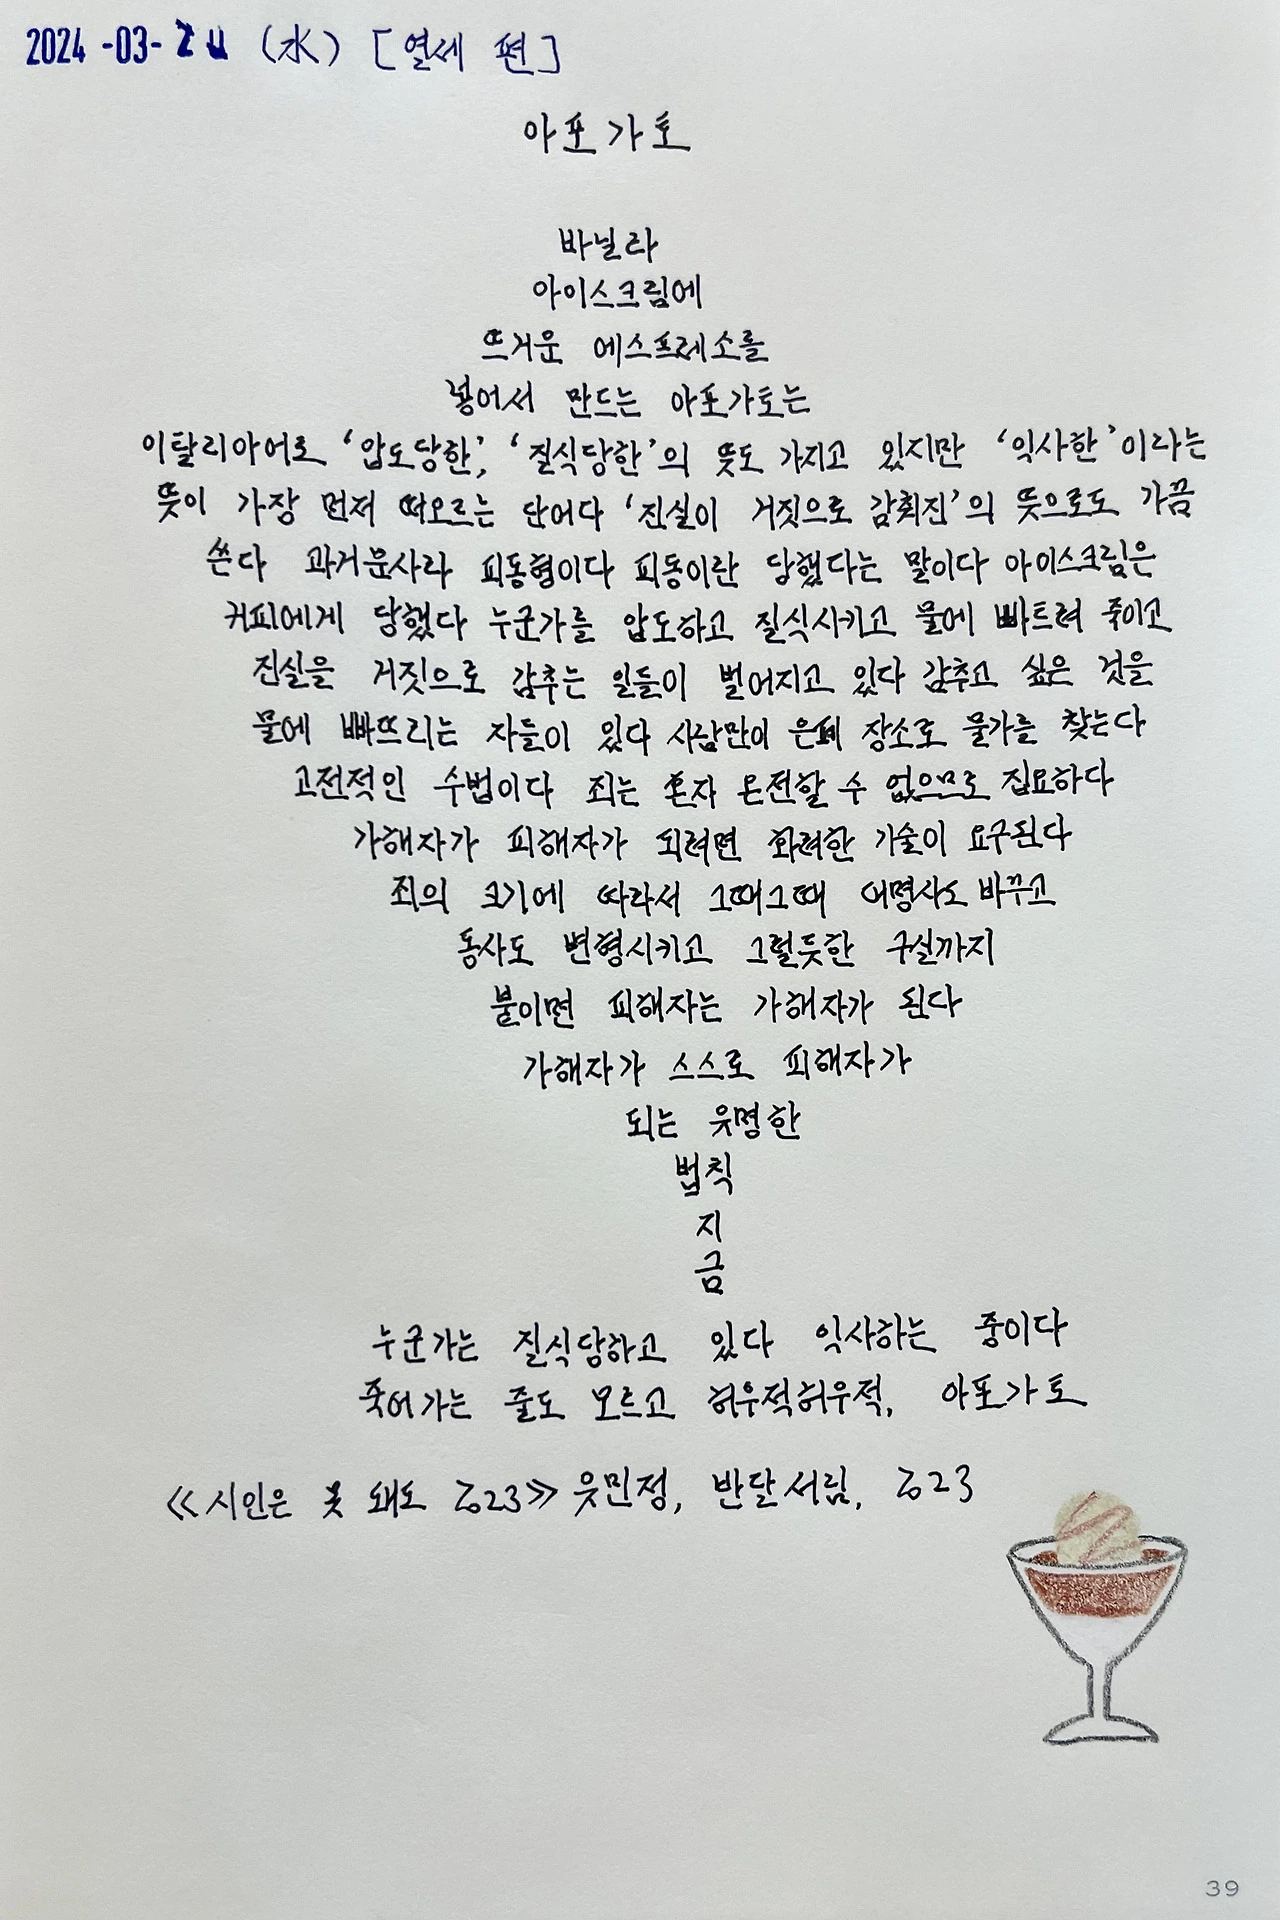 2024 -03- 20 (水) [열세 편]
아포가토
바닐라
아이스크림에
뜨거운 에스프레소를
넣어서 만드는 아포가토는
이탈리아어로 ‘압도당한’, ‘질식당한’의 뜻도 가지고 있지만 ‘익사한’이라는
뜻이 가장 먼저 떠오르는 단어다 ‘진실이 거짓으로 감춰진’의 뜻으로도 가끔
쓴다 과거분사라 피동형이다 피동이란 당했다는 말이다 아이스크림은
커피에게 당했다 누군가를 압도하고 질식시키고 물에 빠트려 죽이고
진실을 거짓으로 감추는 일들이 벌어지고 있다 감추고 싶은 것을
물에 빠뜨리는 자들이 있다 사람만이 은폐 장소로 물가를 찾는다
고전적인 수법이다 죄는 혼자 온전할 수 없으므로 집요하다
가해자가 피해자가 되려면 화려한 기술이 요구된다
죄의 크기에 따라서 그때그때 대명사도 바꾸고
동사도 변형시키고 그럴듯한 구실까지
붙이면 피해자는 가해자가 된다
가해자가 스스로 피해자가
되는 유명한
법칙
지
금
누군가는 질식당하고 있다 익사하는 중이다
죽어가는 줄도 모르고 허우적허우적, 아포가토
≪시인은 못 돼도 2023≫ 윤민정, 반달서림, 2023
39